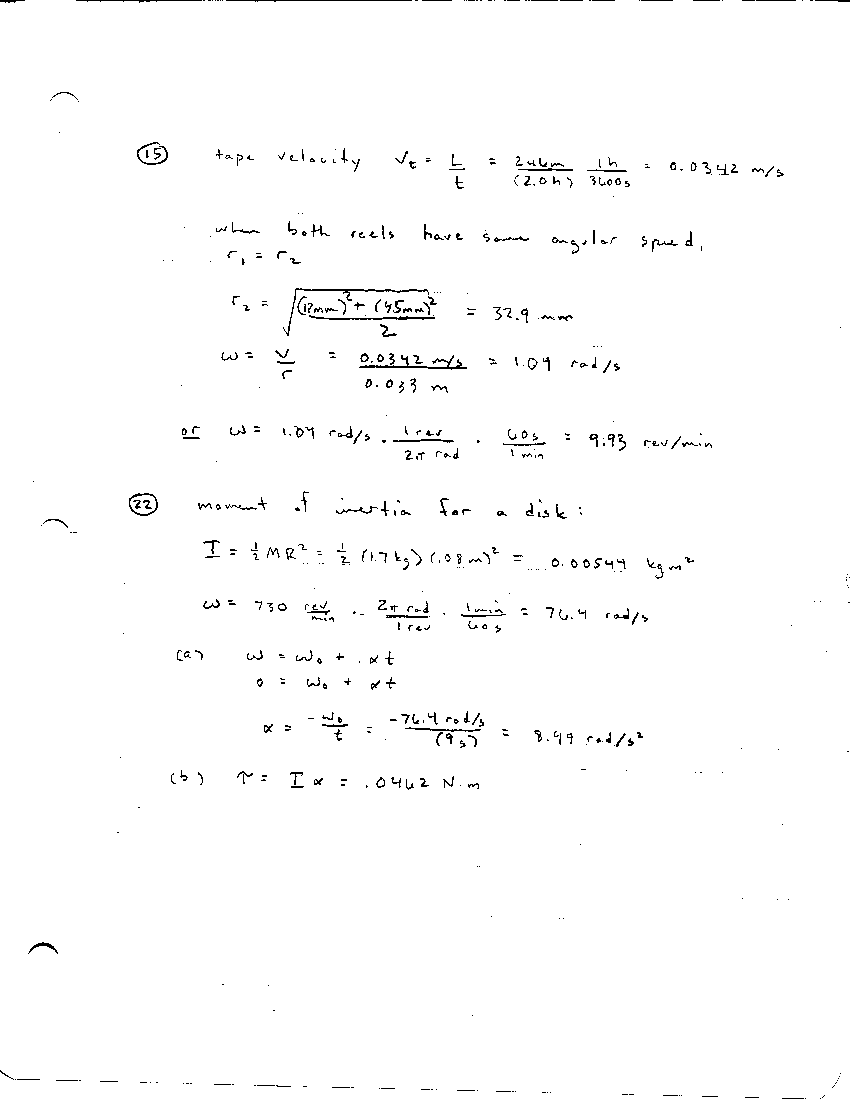 (15) tape velocity V_t = L/t = 246m/(2.0h) 1h/3600s = 0.0342 m/s
when both reels have same angular speed,
r₁ = r₂
r₂ = √(((12mm)² + (45mm)²)/2) = 32.9 mm
ω = v/r = 0.0342 m/s / 0.033 m = 1.04 rad/s
or ω = 1.04 rad/s · 1 rev/2π rad · 60s/1 min = 9.93 rev/min
(22) moment of inertia for a disk:
I = ½MR² = ½ (1.7kg)(.08m)² = 0.00544 kg m²
ω = 730 rev/min · 2π rad/1 rev · 1min/60s = 76.4 rad/s
(a) ω = ω₀ + αt
0 = ω₀ + αt
α = -ω₀/t = -76.4 rad/s/(9s) = 8.49 rad/s²
(b) τ = Iα = .0462 N·m